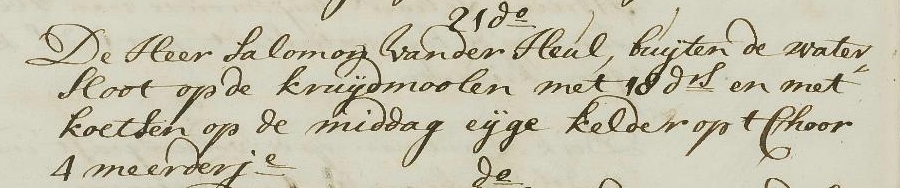 21 do
De Heer Salomon vander Heul, buyten de water„
sloot op de kruydmoolen met 18 drs en met
koetsen op de middag eyge kelder op t Choor
4 meerderje
do